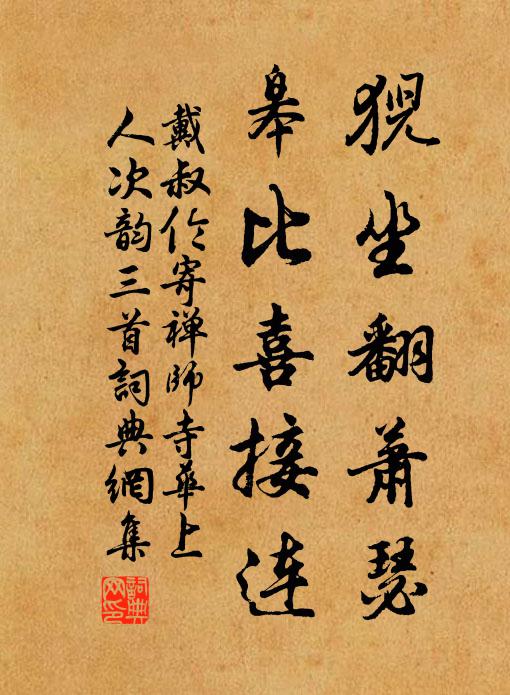 猊坐翻萧瑟
皋比喜接连
戴叔伦寄禅师寺華上
人次韵三首詞典網集
詞典網印